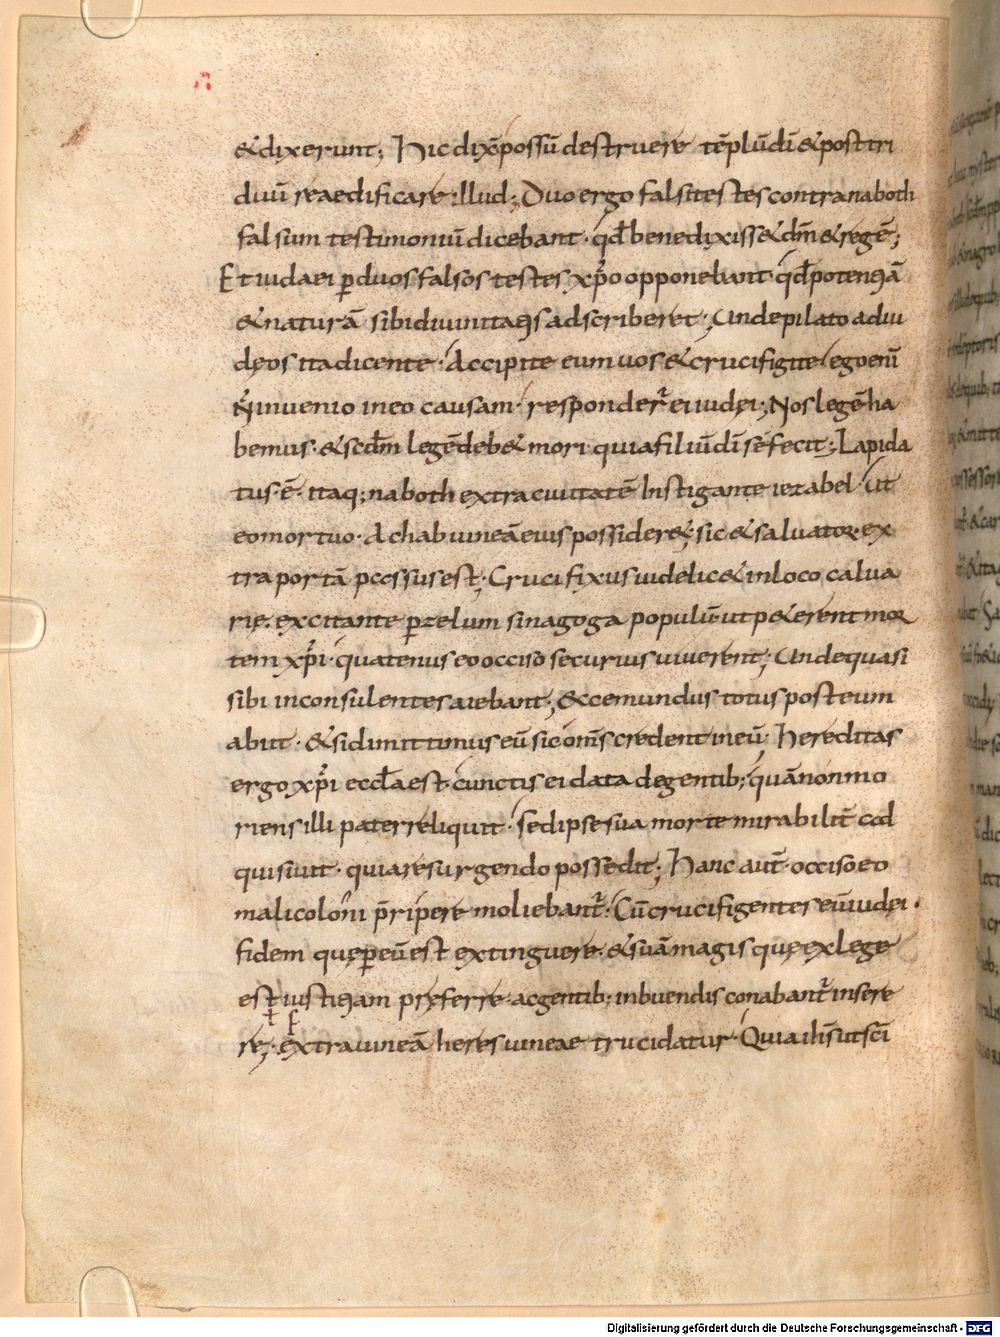 &dixerunt; Hic dix̄ possū destruere tēplū dī & post tri
duū reaedificare illud; Duo ergo falsi testes contra naboth
falsum testimoniū dicebant· qđ benedixiss& dm̄ & regē;
Et iudaei ꝑ duos falsos testes xp̄o opponebant· qđ potentiā
& naturā sibi diuinitatis adscriberet; Unde pilato ad iu
dęos ita dicente· Accipite eum uos & crucifigite· ego enī
N̄ inuenio in eo causam· respondert̄ ei iudęi; Nos legē ha
bemus· & scdm̄ legē deb& mori· quia filiū dī sē fecit; Lapida
tus· ē· itaq; naboth extra ciuitatē Instigante iezabel· ut
eo mortuo· Achab uineā eius possider&; sic & saluator· ex
tra portā pcessus est· Crucifixus uidelic& in loco calua
rię· excitante ꝑ zelum sinagoga populū ut p&erent mor
tem xp̄i· quatenus eo occiso securius uiuerent; Unde quasi
sibi inconsulentes aiebant; &cce mundus totus post eum
abiit· & si dimittimus eū sic om̄s credent in eū· Hereditas
ergo xp̄i eccła est· cunctis ei data de gentib; quā non mo
riens illi pater reliquit· sed ipse sua morte mirabilit̄ cod
quisiuit· quia resurgendo possedit; Hanc aut̄· occiso eo
mali coloni p̄ripere moliebant̄· Cū crucifigentes eū iudęi·
fidem quę ꝑ eū est extinguere· & suā magis quę ex lege
est iustitiam pręferre· ac gentib; inbuendis conabant̄ insere
re; extra uineā heres uineae trucidatur· Quia ih̄s ut sc̄i
Digitalisierung gefördert durch die Deutsche Forschungsgemeinschaft - DFG